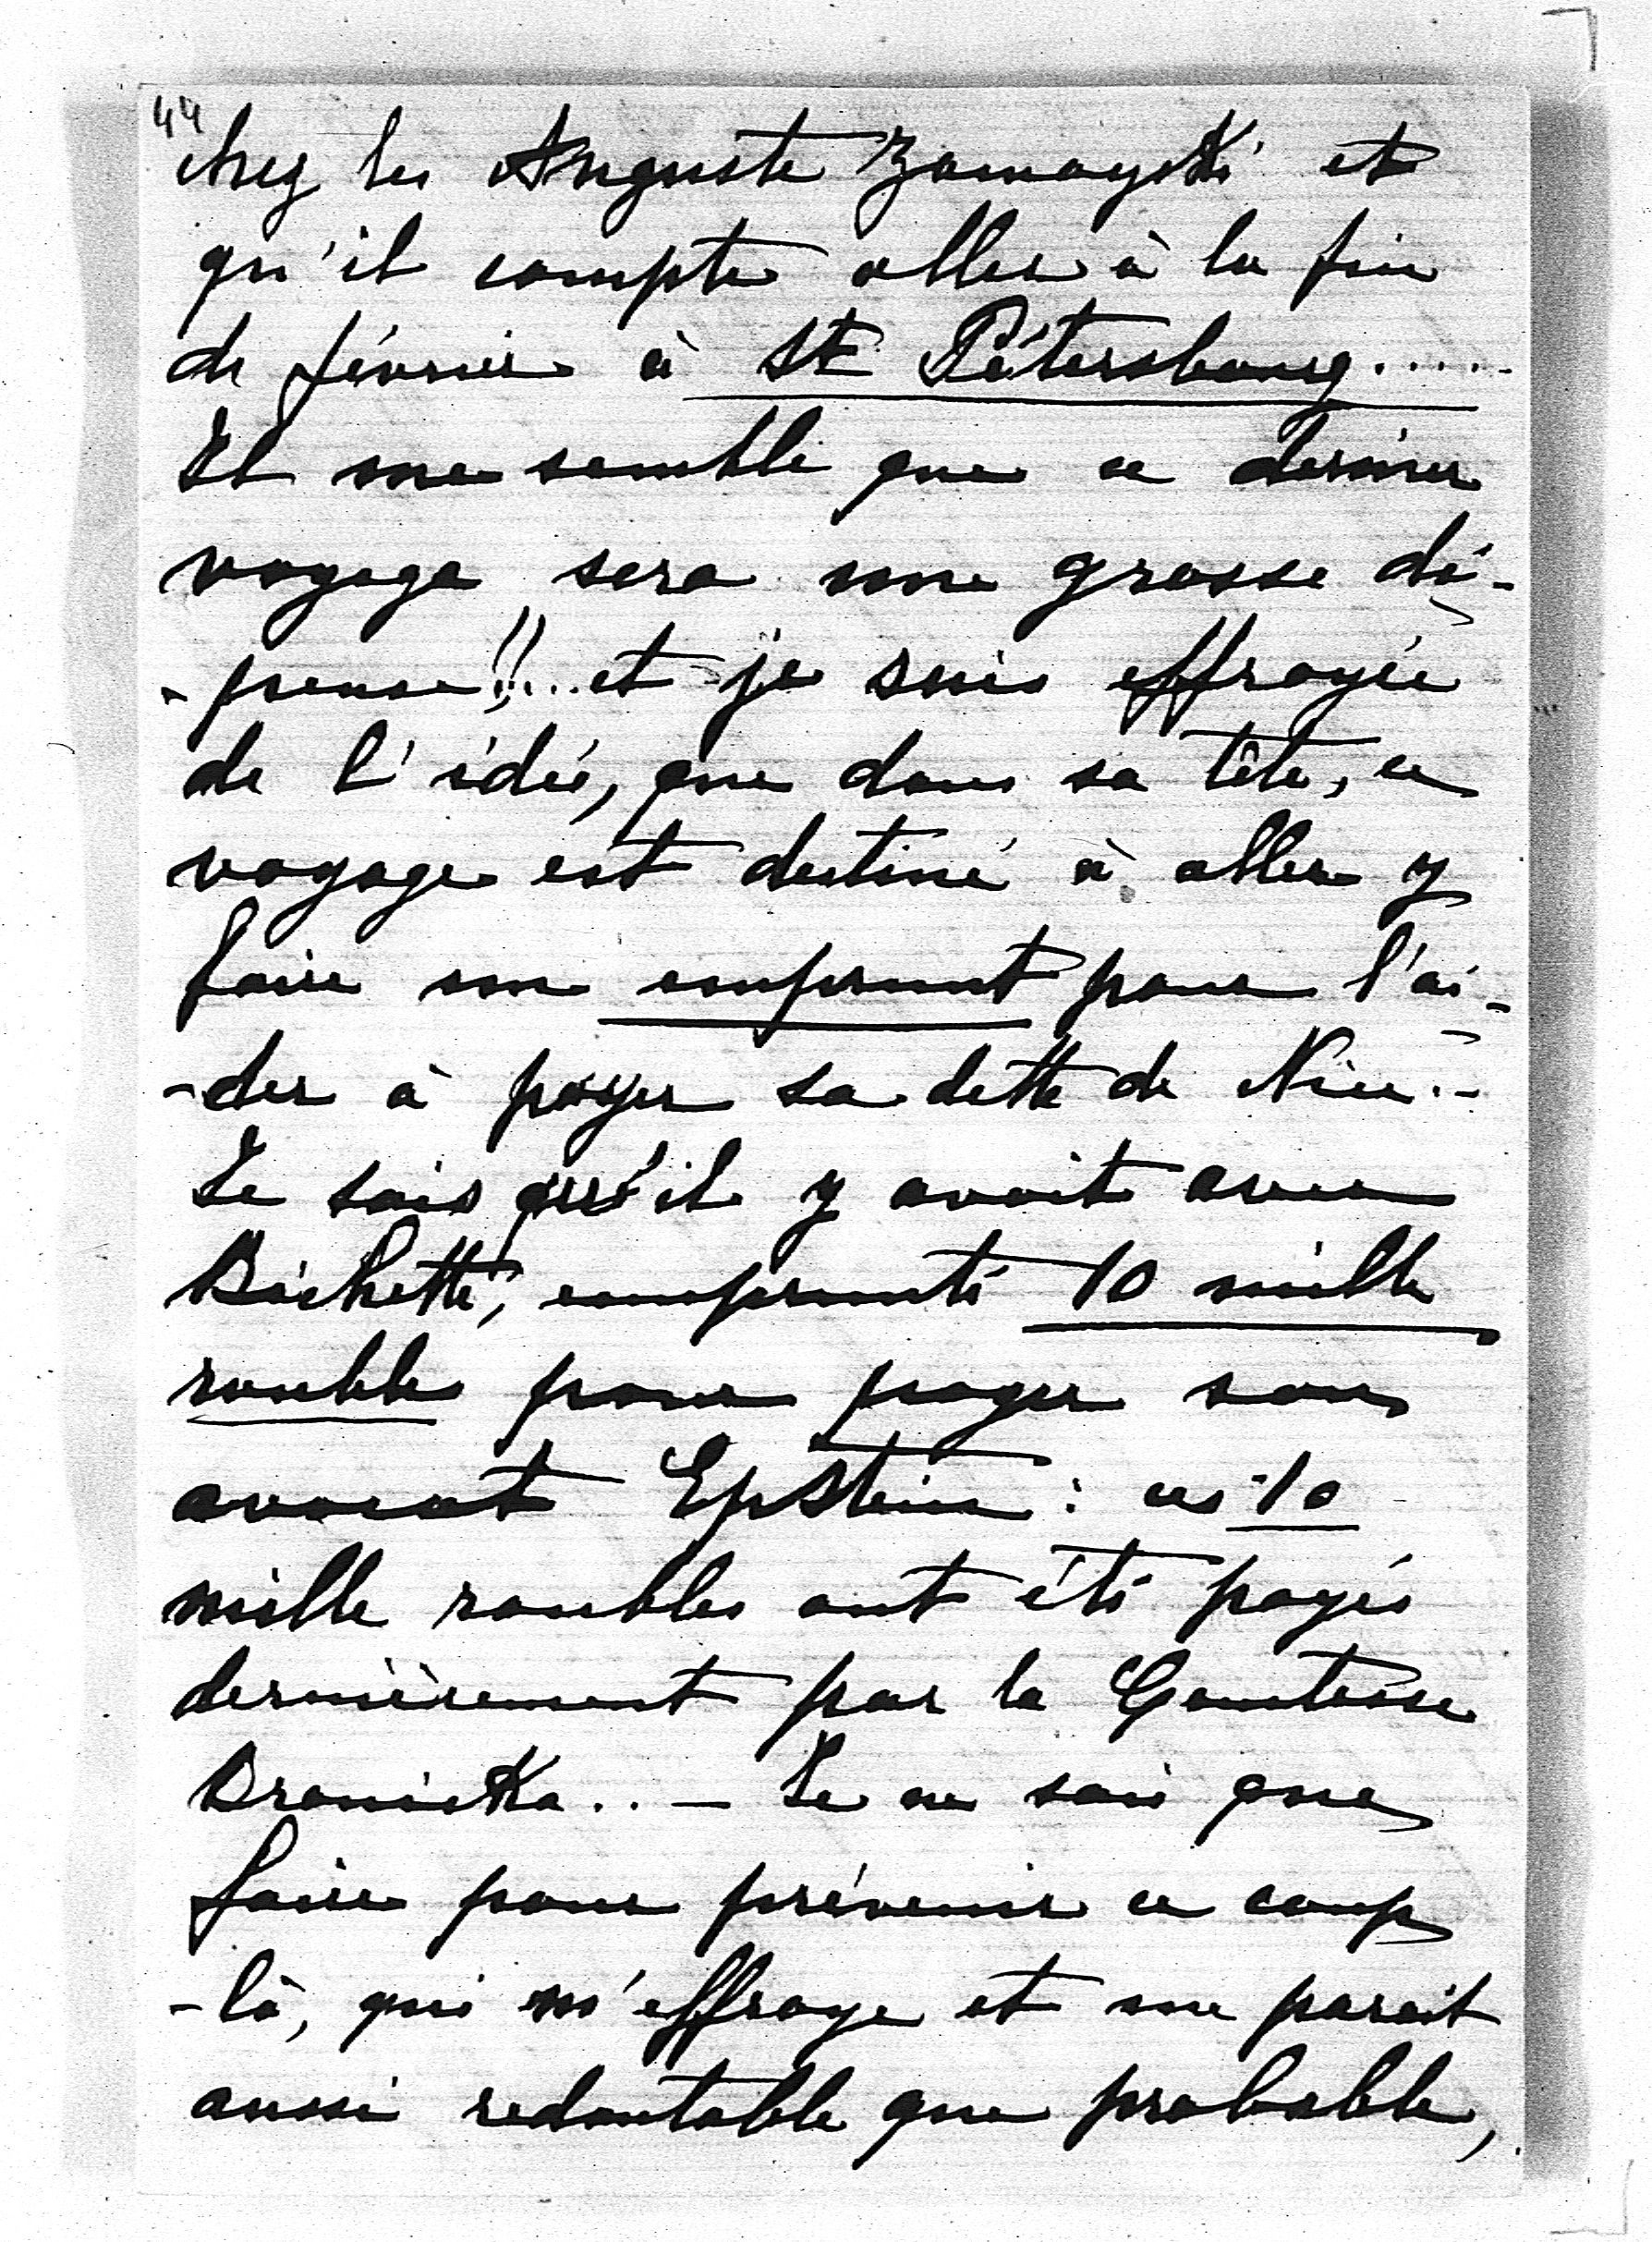 44
chez les Auguste Zamoyski et
qu'il compte aller à la fin
de février à St Pétersbourg.....
Il me semble que ce dernier
voyage sera une grosse dé-
-pense!!... et je suis effrayée
de l'idée, que dans sa tête, ce
voyage est destiné à aller y
faire un emprunt pour l'ai-
-der à payer sa dette de Nice.-
Je sais qu'il y avait avec
Bichette, emprunté 10 mille
roubles pour payer son
avocat Epstein : ces 10
mille roubles ont été payés
dernièrement par la Comtesse
Branicka.. — Je ne sais que
faire pour prévenir ce coup
-là, qui m'effraye et me parait
aussi redoutable que probable,